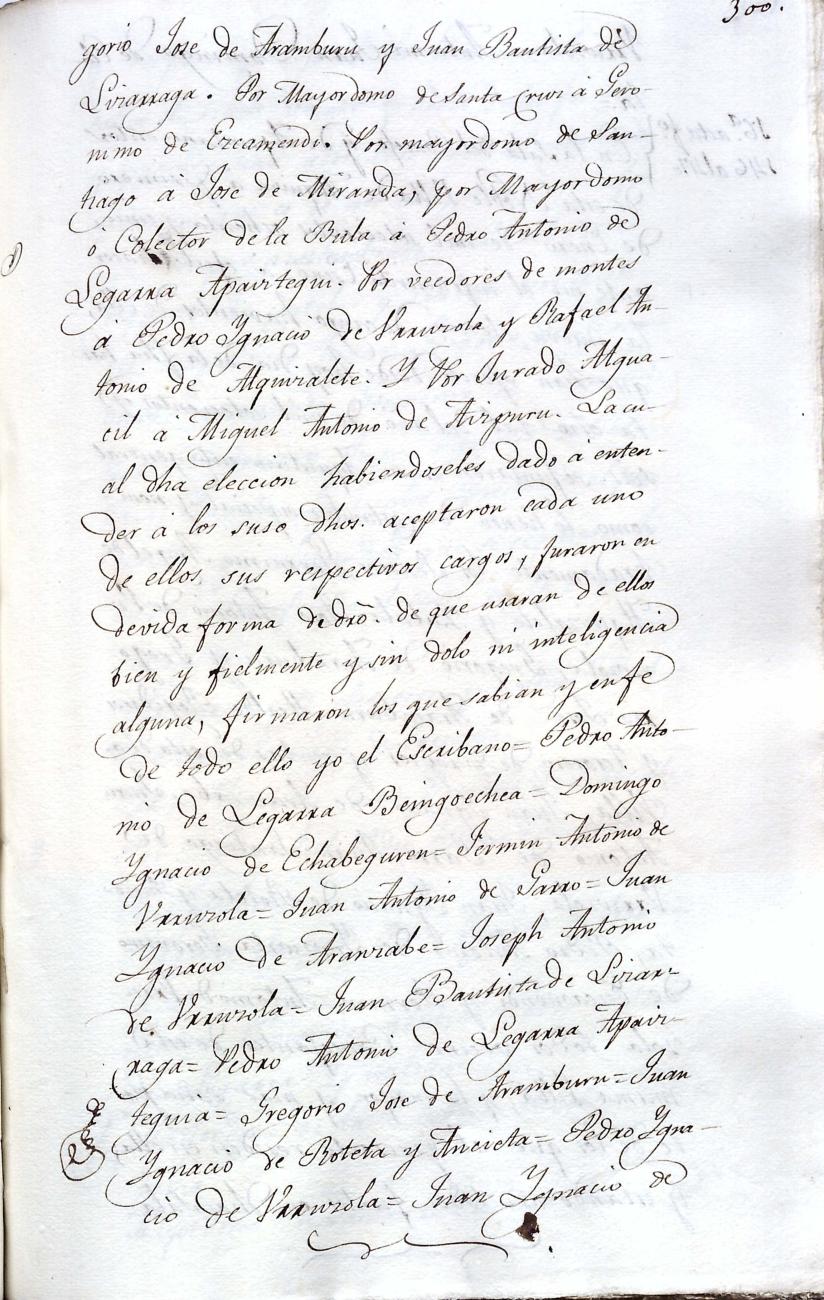 300.
gorio Jose de Aramburu y Juan Bautista de
Lizarraga. Por Mayordomo de Santa Cruz à Gero-
nimo de Ezcamendi. Por mayordomo de San-
tiago à Jose de Miranda, por Mayordomo
ò Colector de la Bula à Pedro Antonio de
Legarra Apaiztegui. Por veedores de montes
à Pedro Ygnacio de Urruzola y Rafael An-
tonio de Alquizalete. Y Por Jurado Algua-
cil à Miguel Antonio de Aizpuru. La cu-
al dha eleccion habiendoseles dado à enten-
der à los suso dhos. aceptaron cada uno
de ellos sus respectivos cargos, juraron en
devida forma de dro. de que usaran de ellos
bien y fielmente y sin dolo ni inteligencia
alguna, firmaron los que sabian y en fe
de todo ello yo el Escribano = Pedro Anto-
nio de Legarra Beingoechea = Domingo
Ygnacio de Echabeguren = Fermin Antonio de
Urruzola = Juan Antonio de Garro = Juan
Ygnacio de Aranzabe = Joseph Antonio
de Urruzola = Juan Bautista de Lizar-
raga = Pedro Antonio de Legarra Apaiz-
teguia = Gregorio Jose de Aramburu = Juan
Ygnacio de Roteta y Ancieta = Pedro Ygna-
cio de Urruzola = Juan Ygnacio de